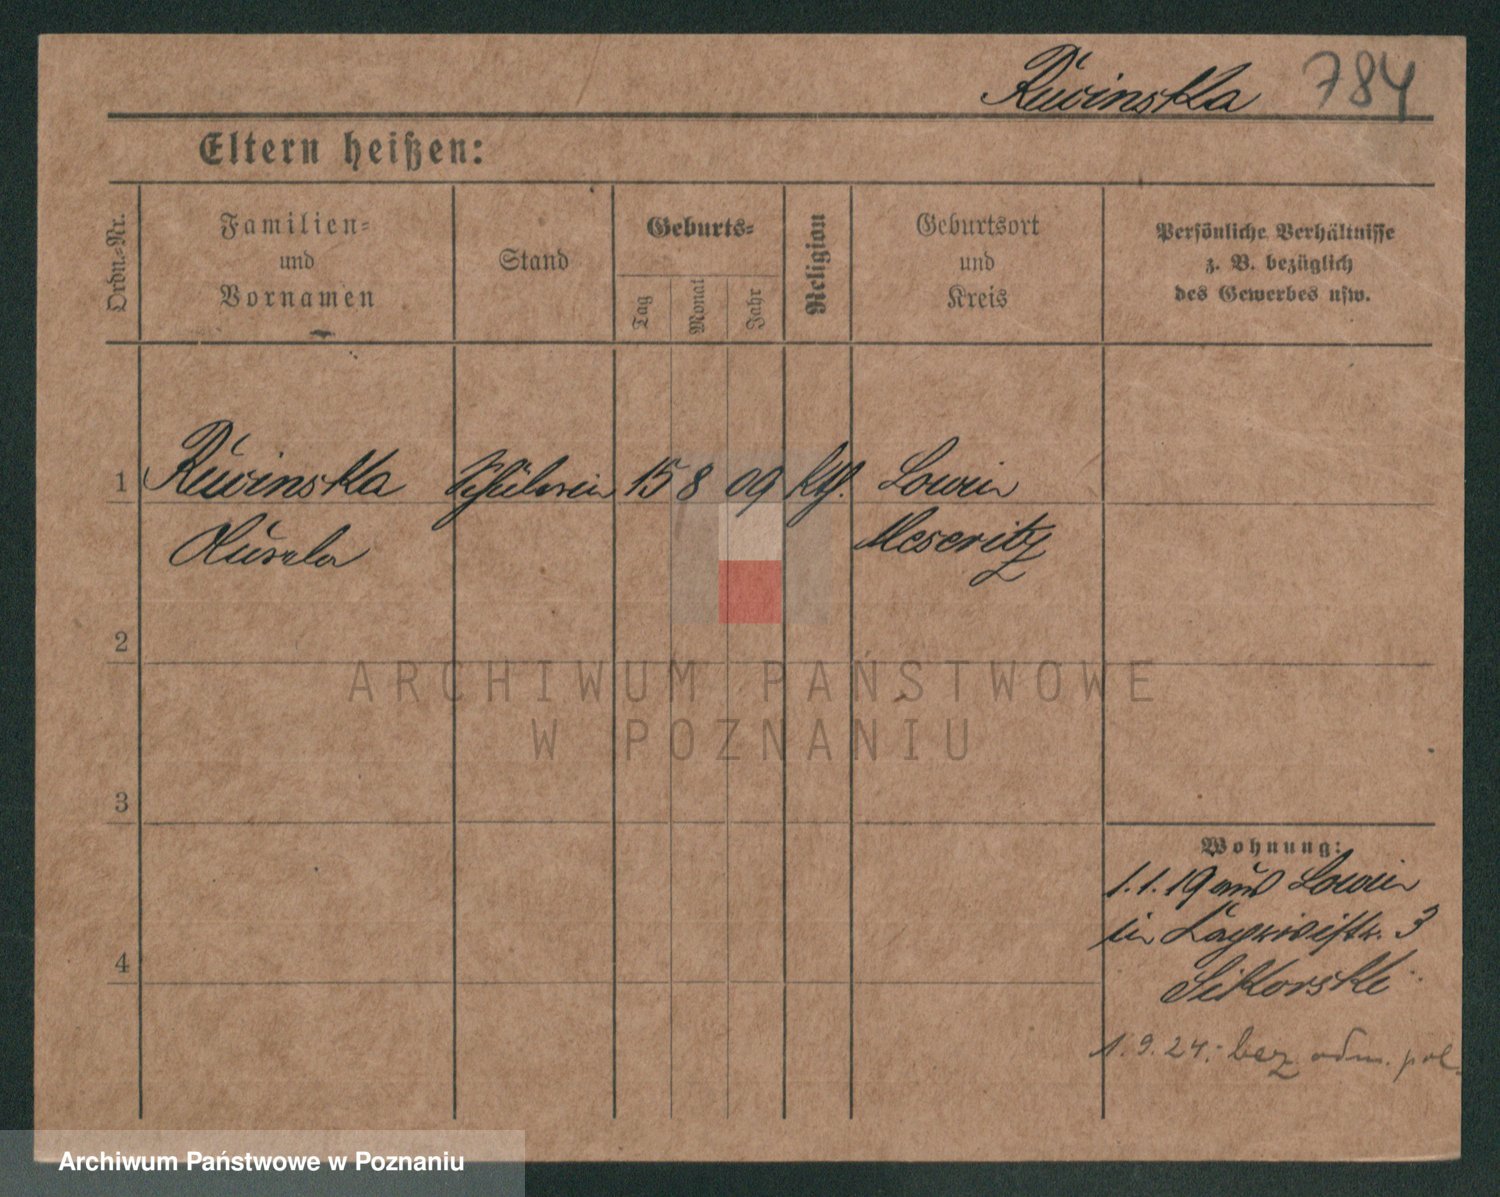 Ruwinska 784
Eltern heißen:
Ordn.-Nr.
Familien-
und
Vornamen
Stand
Geburts-
Tag
Monat
Jahr
Religion
Geburtsort
und
Kreis
Persönliche Verhältnisse
z. B. bezüglich
des Gewerbes usw.
1 Ruwinska Schülerin 15 8 09 kth. Lowin
Meseritz
2
3
4
Wohnung:
1.1.19 aus Lowin
in 3
Sikorski
1.9.24. bez adm. pol.
ARCHIWUM PAŃSTWOWE
W POZNANIU
Archiwum Państwowe w Poznaniu